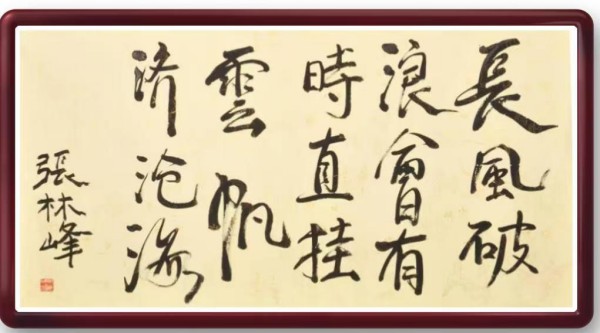 長風破
浪會有
時直挂
雲帆
济沧海
張林峰